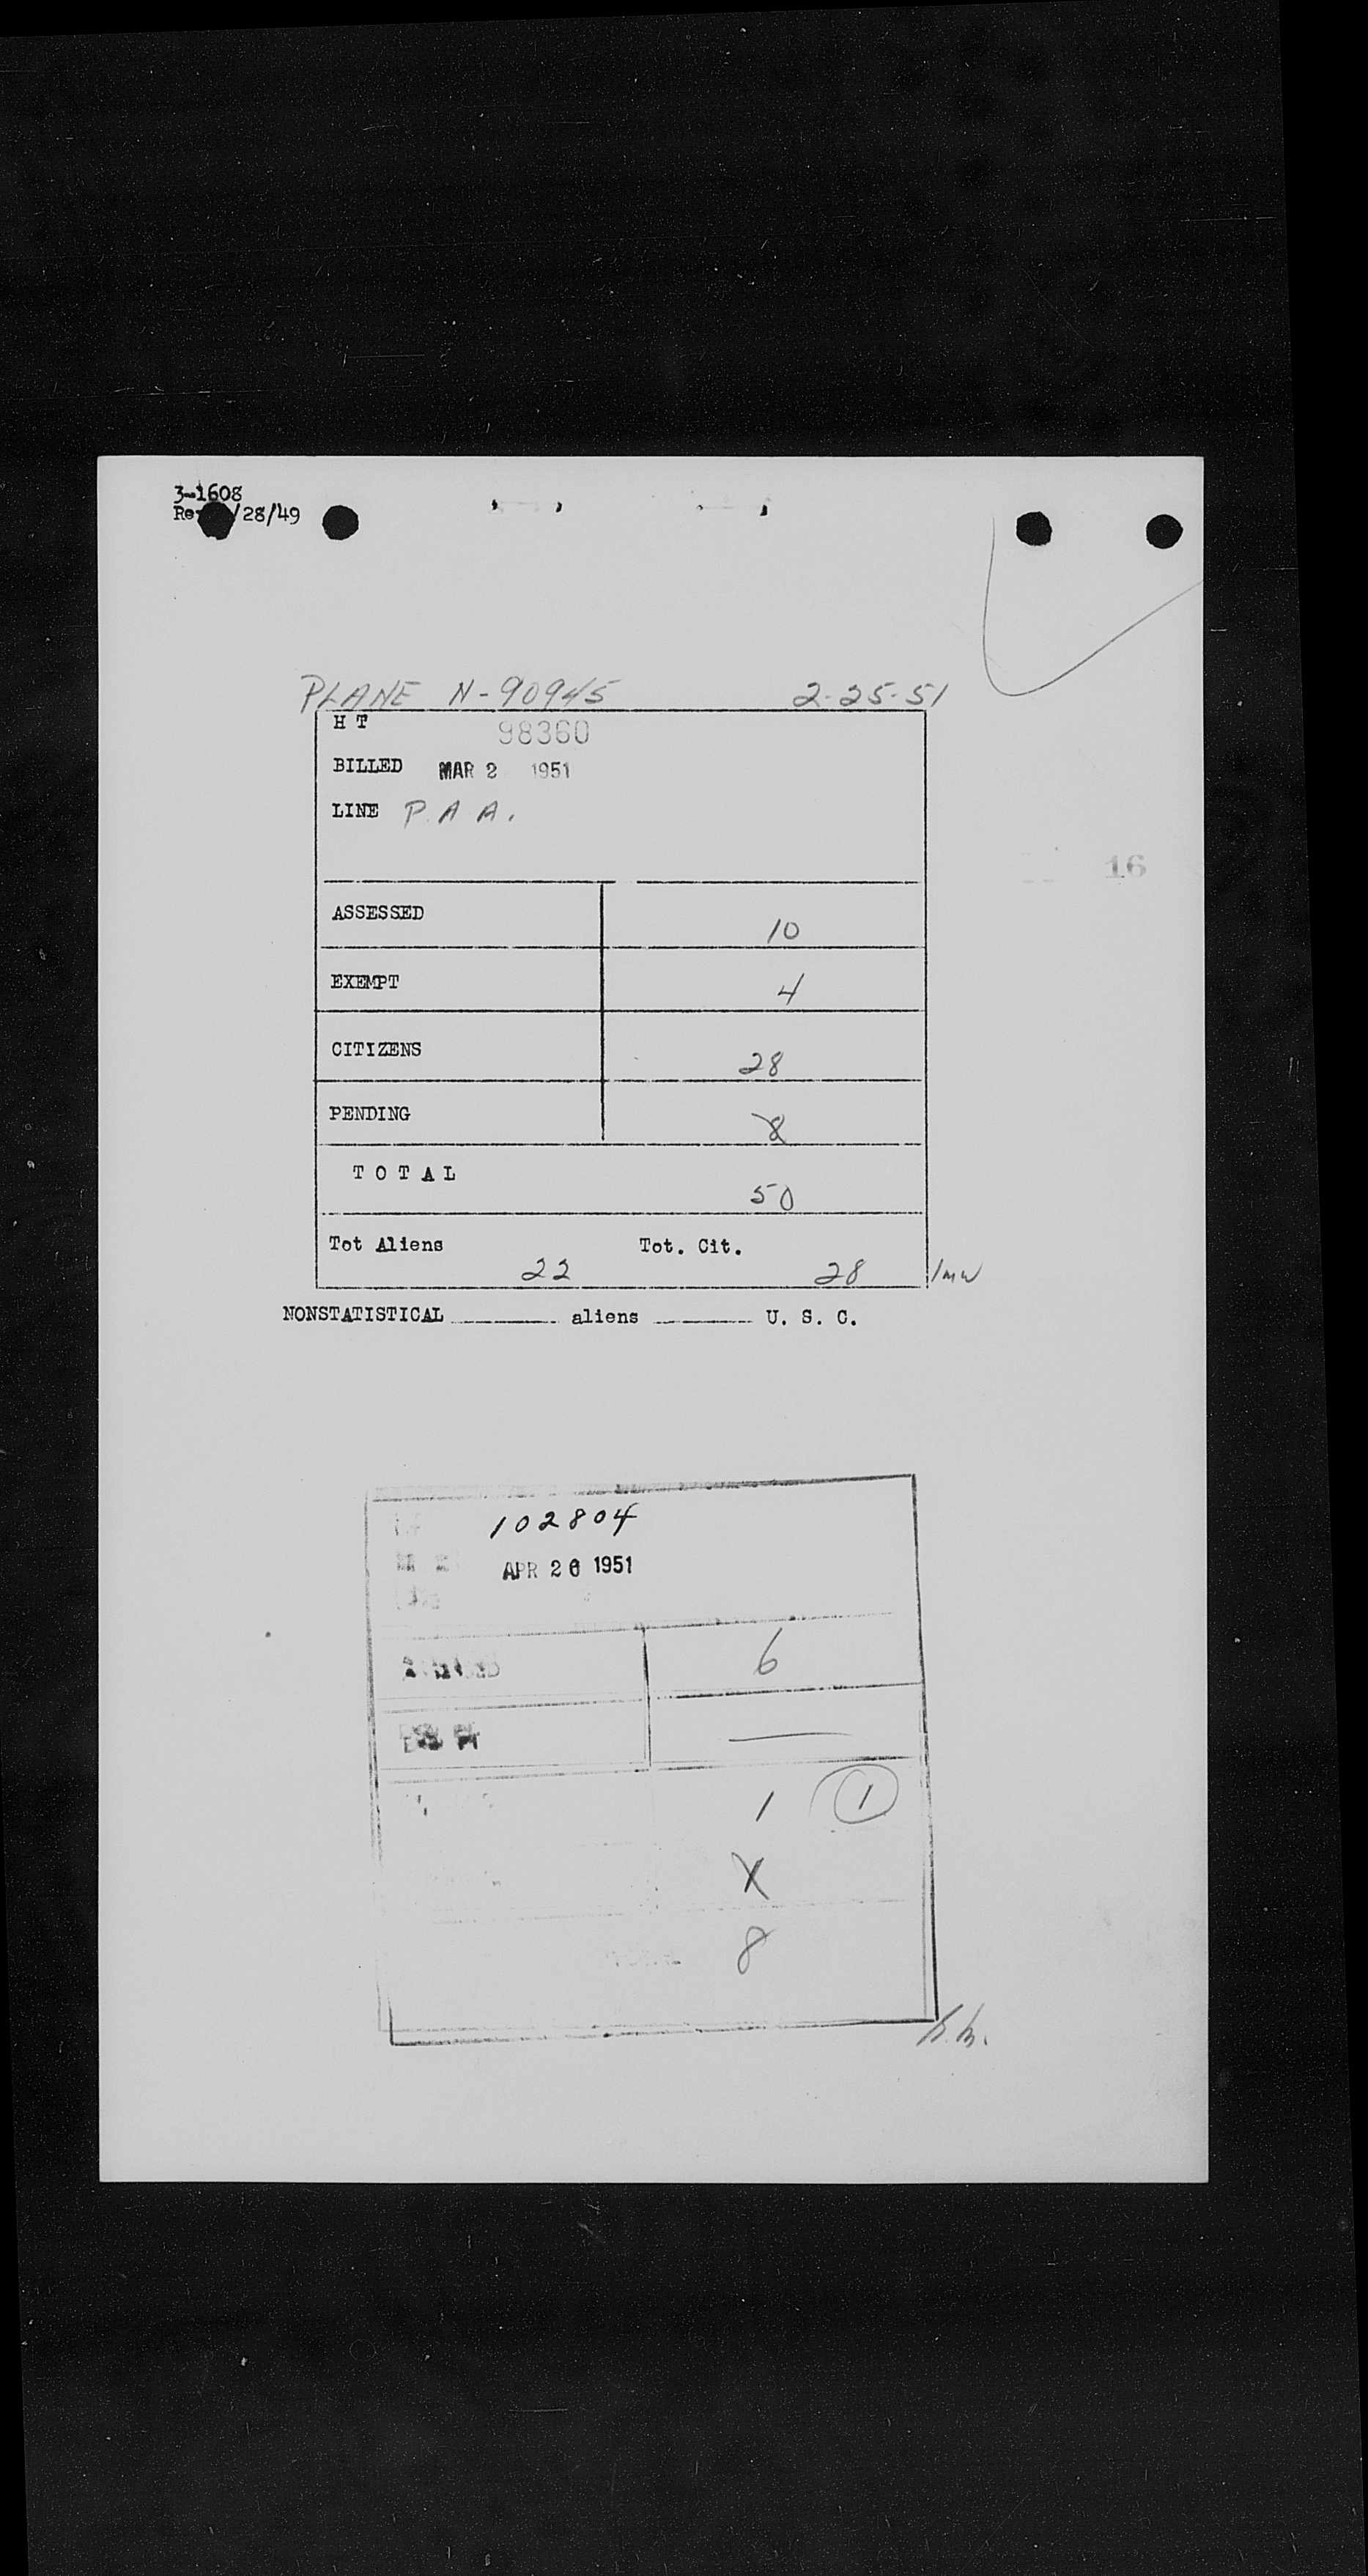 3-1608
/28/49
PLANE N-90945 2-25-51
H T 98360
BILLED MAR 2 1951
LINE P. A A.
16
ASSESSED 10
EXEMPT 4
CITIZENS 28
PENDING 8
T O T A L 50
Tot Aliens 22 Tot. Cit. 28
NONSTATISTICAL aliens U. S. C.
102804
APR 26 1951
6
1 1
X
8